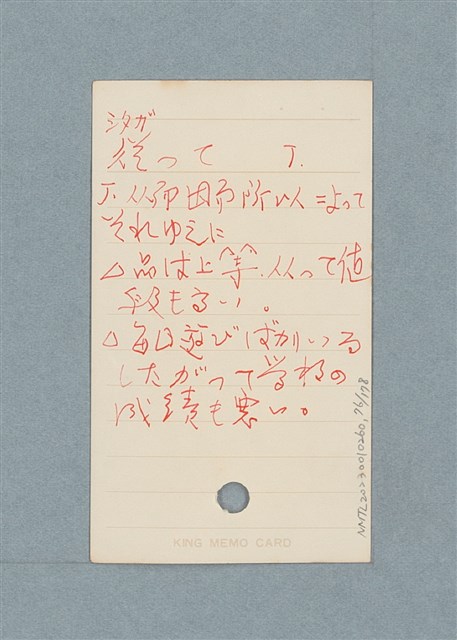 シタガ
従って J.
J. 从而 因而 所以 ニよって
それゆえに
△品は上等.从って値
段も高い。
△毎日遊びばかりいる
したがって学校の
成績も悪い。
NMTL20230010260, 76/178
KING MEMO CARD